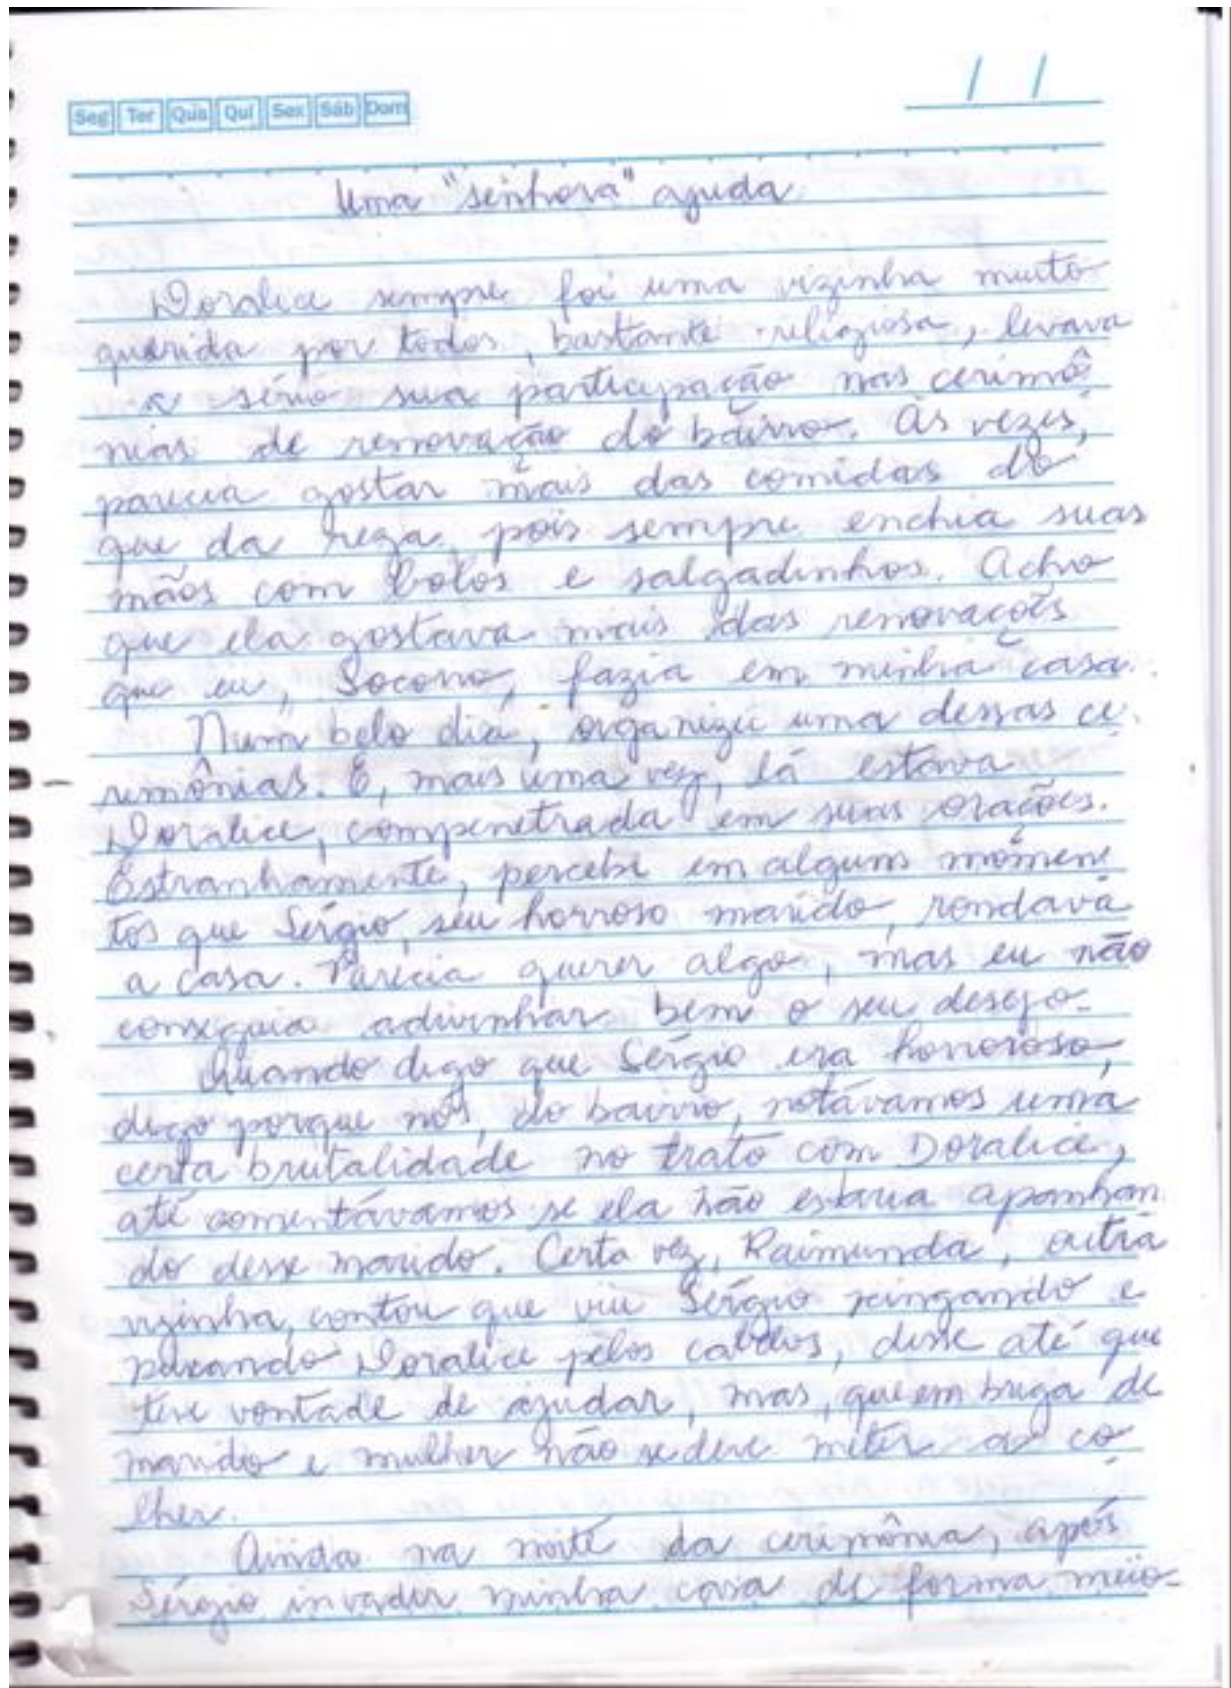 Seg Ter Qua Qui Sex Sáb Dom
/ /
Uma "senhora" ajuda
Doralice sempre foi uma vizinha muito
querida por todos, bastante religiosa, levava
a sério sua participação nas cerimô
nias de renovação do bairro. Às vezes,
parecia gostar mais das comidas do
que da reza, pois sempre enchia suas
mãos com bolos e salgadinhos. Acho
que ela gostava mais das renovações
que eu, Socorro, fazia em minha casa.
Num belo dia, organizei uma dessas ce
rimônias. E, mais uma vez, lá estava
Doralice, compenetrada em suas orações.
Estranhamente, percebi em alguns momen
tos que Sérgio, seu horroso marido, rondava
a casa. Parecia querer algo, mas eu não
conseguia adivinhar bem o seu desejo.
Quando digo que Sérgio era horroroso,
digo porque nós, do bairro, notávamos uma
certa brutalidade no trato com Doralice,
até comentávamos se ela não estaria apanhan
do desse marido. Certa vez, Raimunda, outra
vizinha, contou que viu Sérgio xingando e
puxando Doralice pelos cabelos, disse até que
teve vontade de ajudar, mas, que em briga de
marido e mulher não se deve meter a co
lher.
Ainda na noite da cerimônia, após
Sérgio invadir minha casa de forma meio